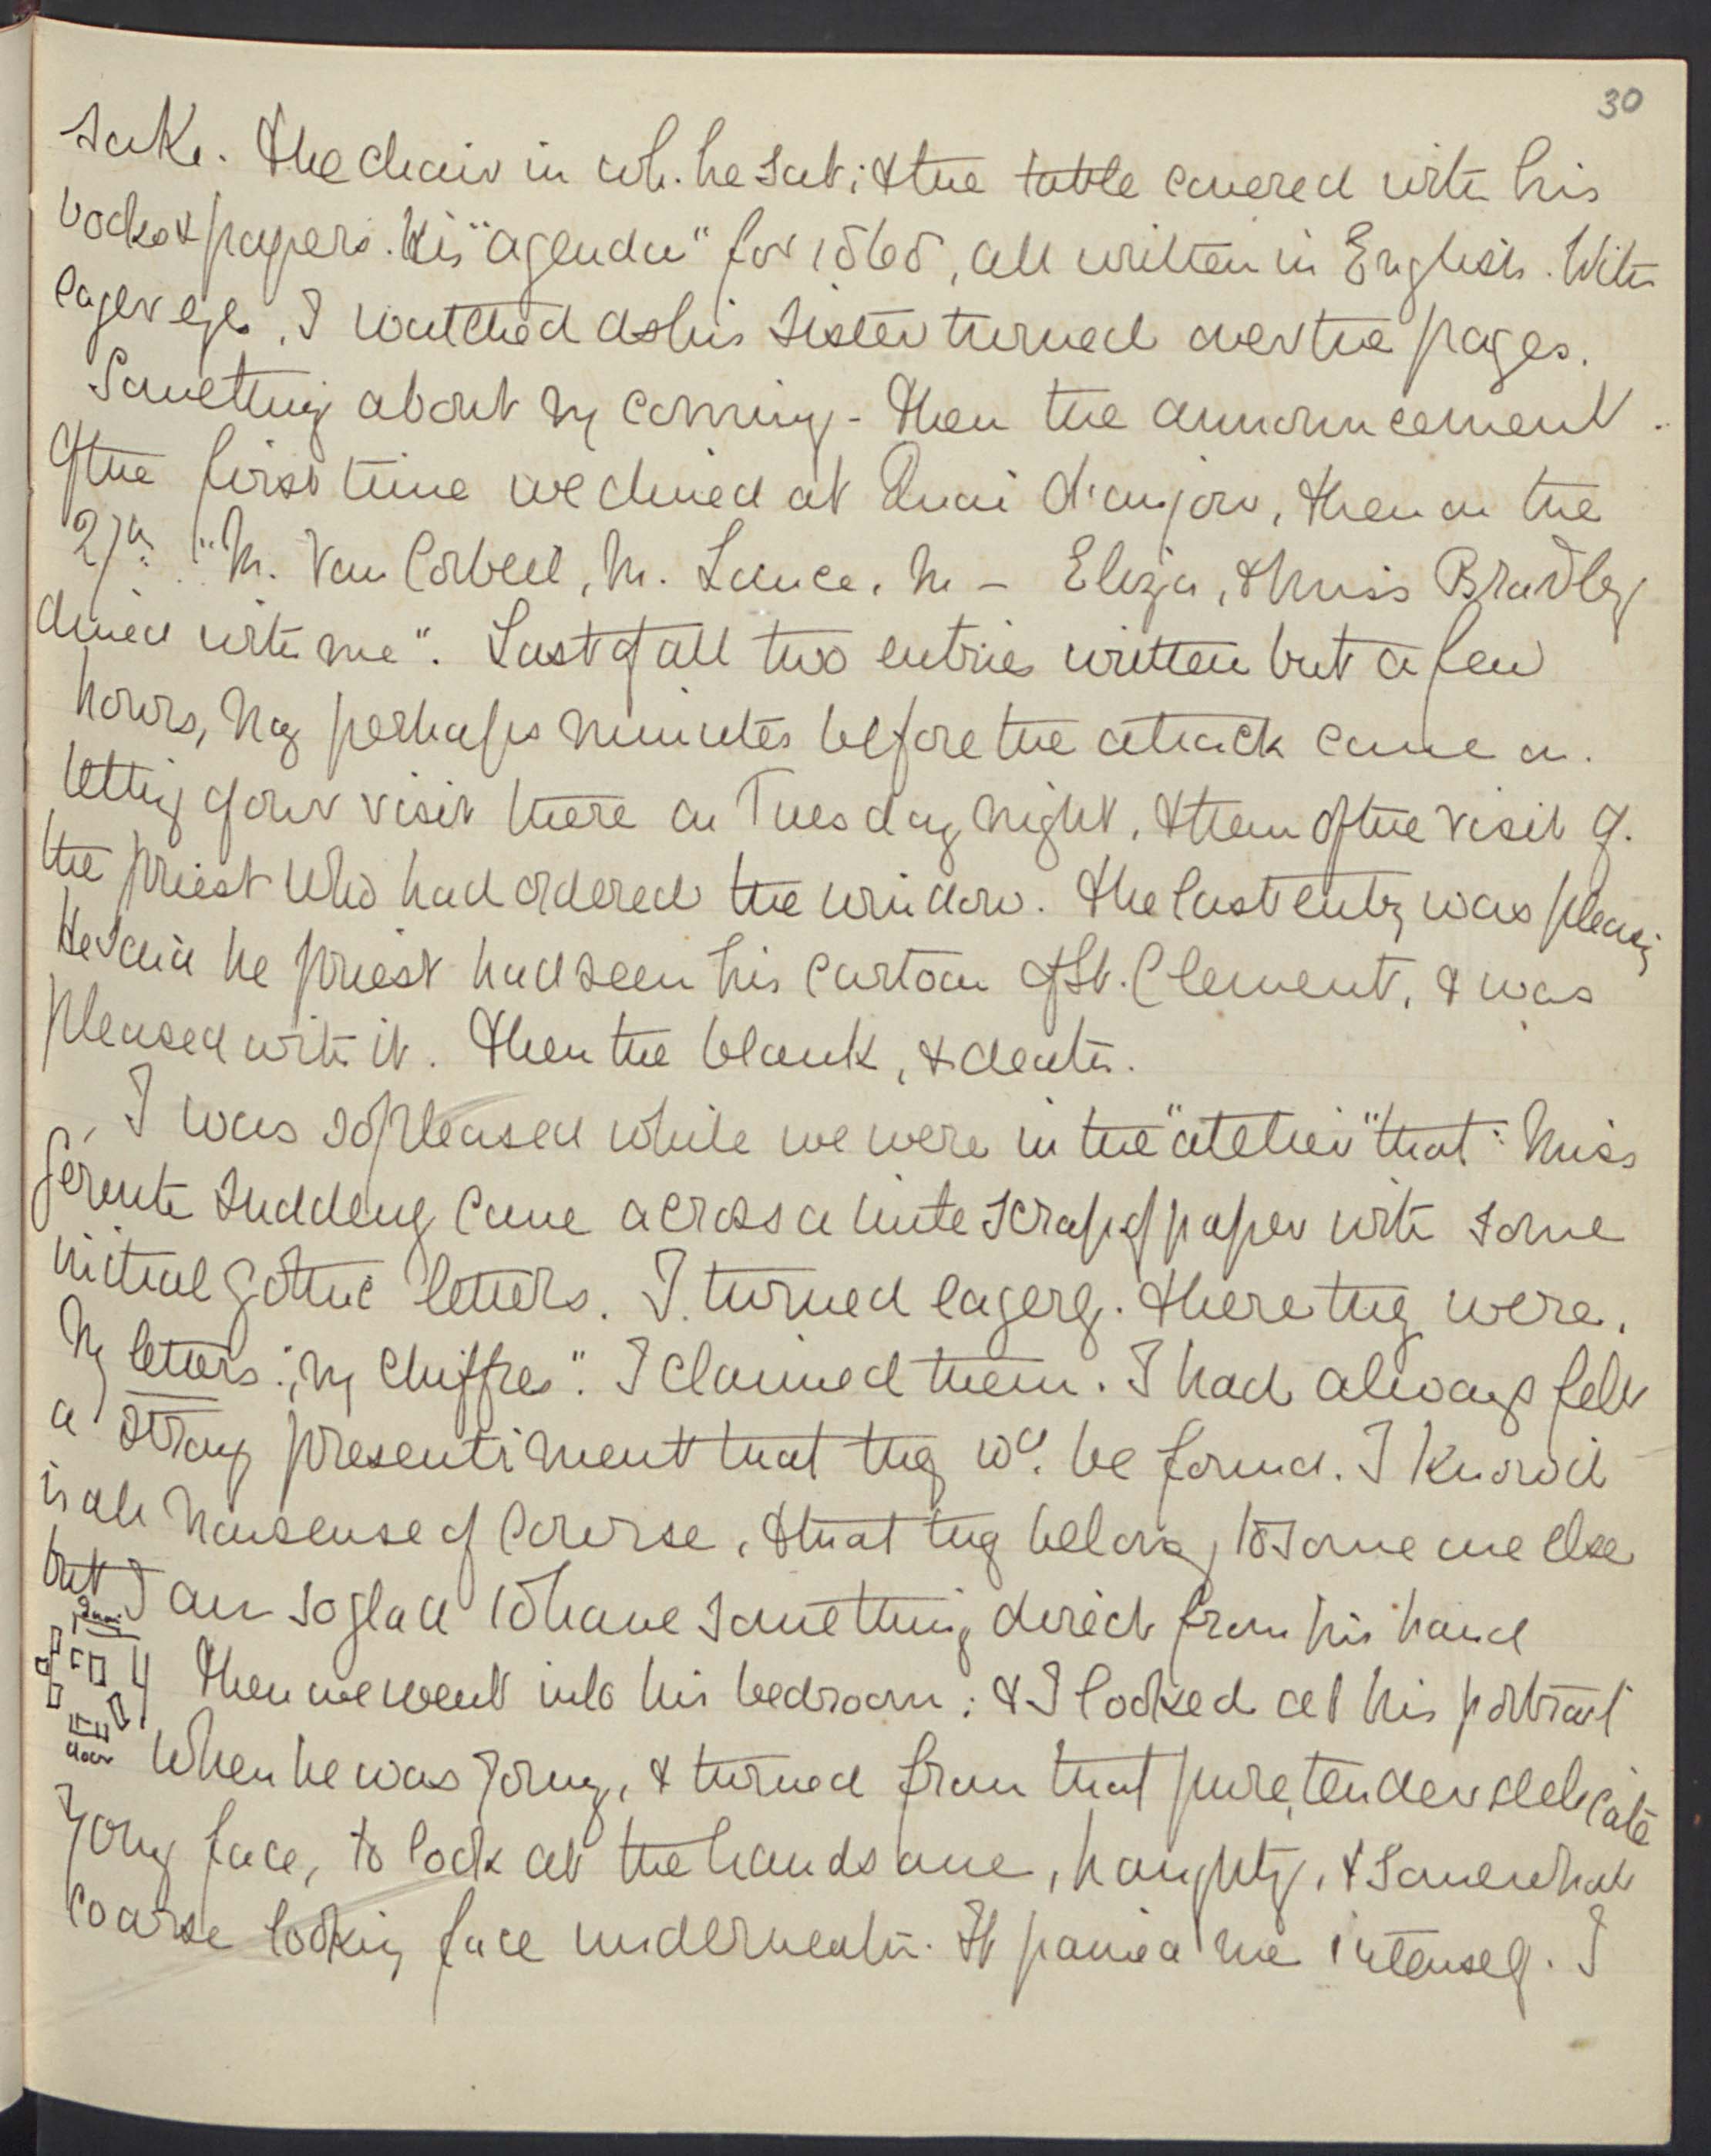 30
sake. The chair in wh. he sat; & the table covered with his
books & papers. His "agenda" for 1868, all written in English. With
eager eyes, I watched as his sister turned over the pages.
Something about my coming - then the announcement
of the first time we dined at Quai d'anjou, then on the
27th "M. Van Corbeil, M. Lance, M - Eliza, & Miss Bradley
dined with me". Last of all two entries written but a few
hours, nay perhaps minutes before the attack came on.
telling of our visit there on Tuesday night, & then of the visit of
the priest who had ordered the window. The last entry was pleasing
He said he priest had seen his cartoon of St. Clement, & was
pleased with it. Then the blank, & death.
I was so pleased while we were in the "atelier" that Miss
Gérente suddenly came across a little scrap of paper with some
initial gothic letters. I turned eagerly. There they were.
My letters; "my chiffres". I claimed them. I had always felt
a strong presentiment that they wd. be found. I know it
is all nonsense of course, & that they belong to some one else
but I am so glad to have something direct from his hand
Quai
Then we went into his bedroom; & I looked at his portrait
door
When he was young, & turned from that pure, tender delicate
young face, to look at the handsome, haughty, & somewhat
coarse looking face underneath. It pained me intensely. I